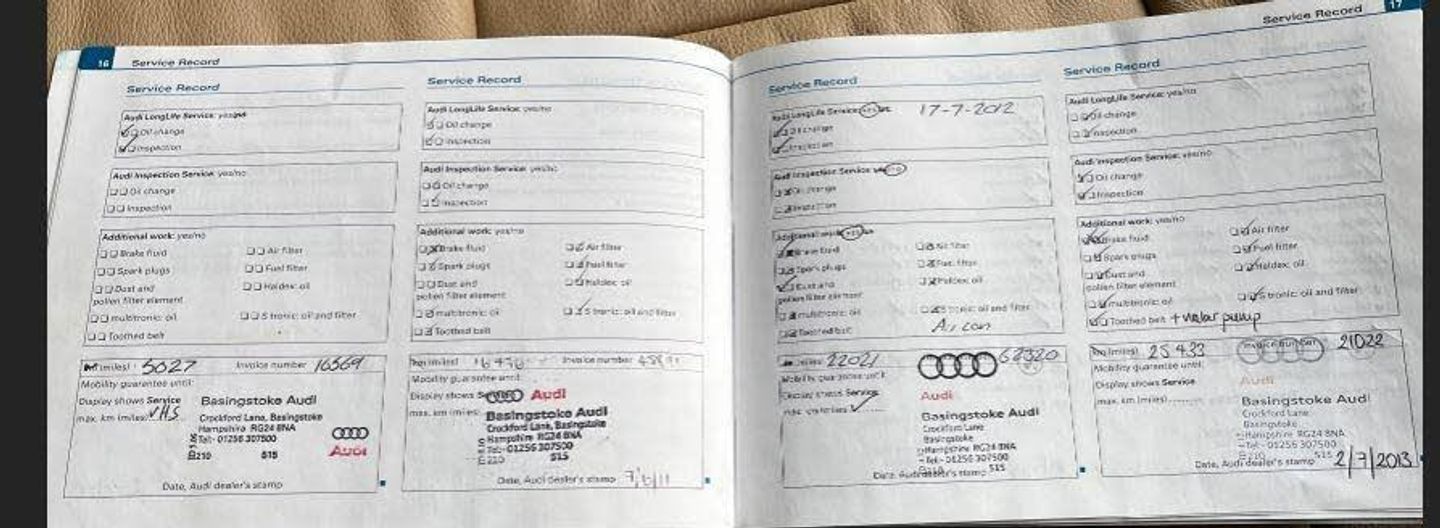 16 Service Record
Service Record
Audi LongLife Service: yes/no
Oil change
Inspection
Audi Inspection Service: yes/no
Oil change
Inspection
Additional work: yes/no
Brake fluid
Air filter
Spark plugs
Fuel filter
Dust and
pollen filter element
Haldex: oil
multitronic: oil
S tronic: oil and filter
Toothed belt
(miles) 5027 Invoice number 16569
Mobility guarantee until:
Display shows Service
max. km (miles)
Basingstoke Audi
Crockford Lane, Basingstoke
Hampshire RG24 8NA
Tel:- 01256 307500
B210 515
Audi
Date, Audi dealer's stamp
Service Record
Audi LongLife Service: yes/no
Oil change
Inspection
Audi Inspection Service: yes/no
Oil change
Inspection
Additional work: yes/no
Brake fluid
Air filter
Spark plugs
Fuel filter
Dust and
pollen filter element
Haldex: oil
multitronic: oil
S tronic: oil and filter
Toothed belt
(miles) Invoice number
Mobility guarantee until:
Display shows
max. km (miles)
Audi
Basingstoke Audi
Crockford Lane, Basingstoke
Hampshire RG24 8NA
Tel:- 01256 307500
515
Date, Audi dealer's stamp
Service Record 17
Service Record
Audi LongLife Service: 17-7-2012
Oil change
Inspection
Audi Inspection Service:
Oil change
Inspection
Additional work:
Brake fluid
Air filter
Spark plugs
Fuel filter
Dust and
pollen filter element
Haldex: oil
multitronic: oil
S tronic: oil and filter
Toothed belt
Air con
(miles) 22021
Mobility guarantee until:
Display shows Service
max. km (miles)
Audi
Basingstoke Audi
Crockford Lane
Basingstoke
Hampshire RG24 8NA
Tel:- 01256 307500
515
Date, Audi dealer's stamp
Service Record
Audi LongLife Service: yes/no
Oil change
Inspection
Audi Inspection Service: yes/no
Oil change
Inspection
Additional work: yes/no
Brake fluid
Air filter
Spark plugs
Fuel filter
Dust and
pollen filter element
Haldex: oil
multitronic: oil
S tronic: oil and filter
Toothed belt + water pump
(miles) 25433 Invoice number 21022
Mobility guarantee until:
Display shows Service
max. km (miles)
Audi
Basingstoke Audi
Crockford Lane
Basingstoke
Hampshire RG24 8NA
Tel:- 01256 307500
515
Date, Audi dealer's stamp 2/7/2013